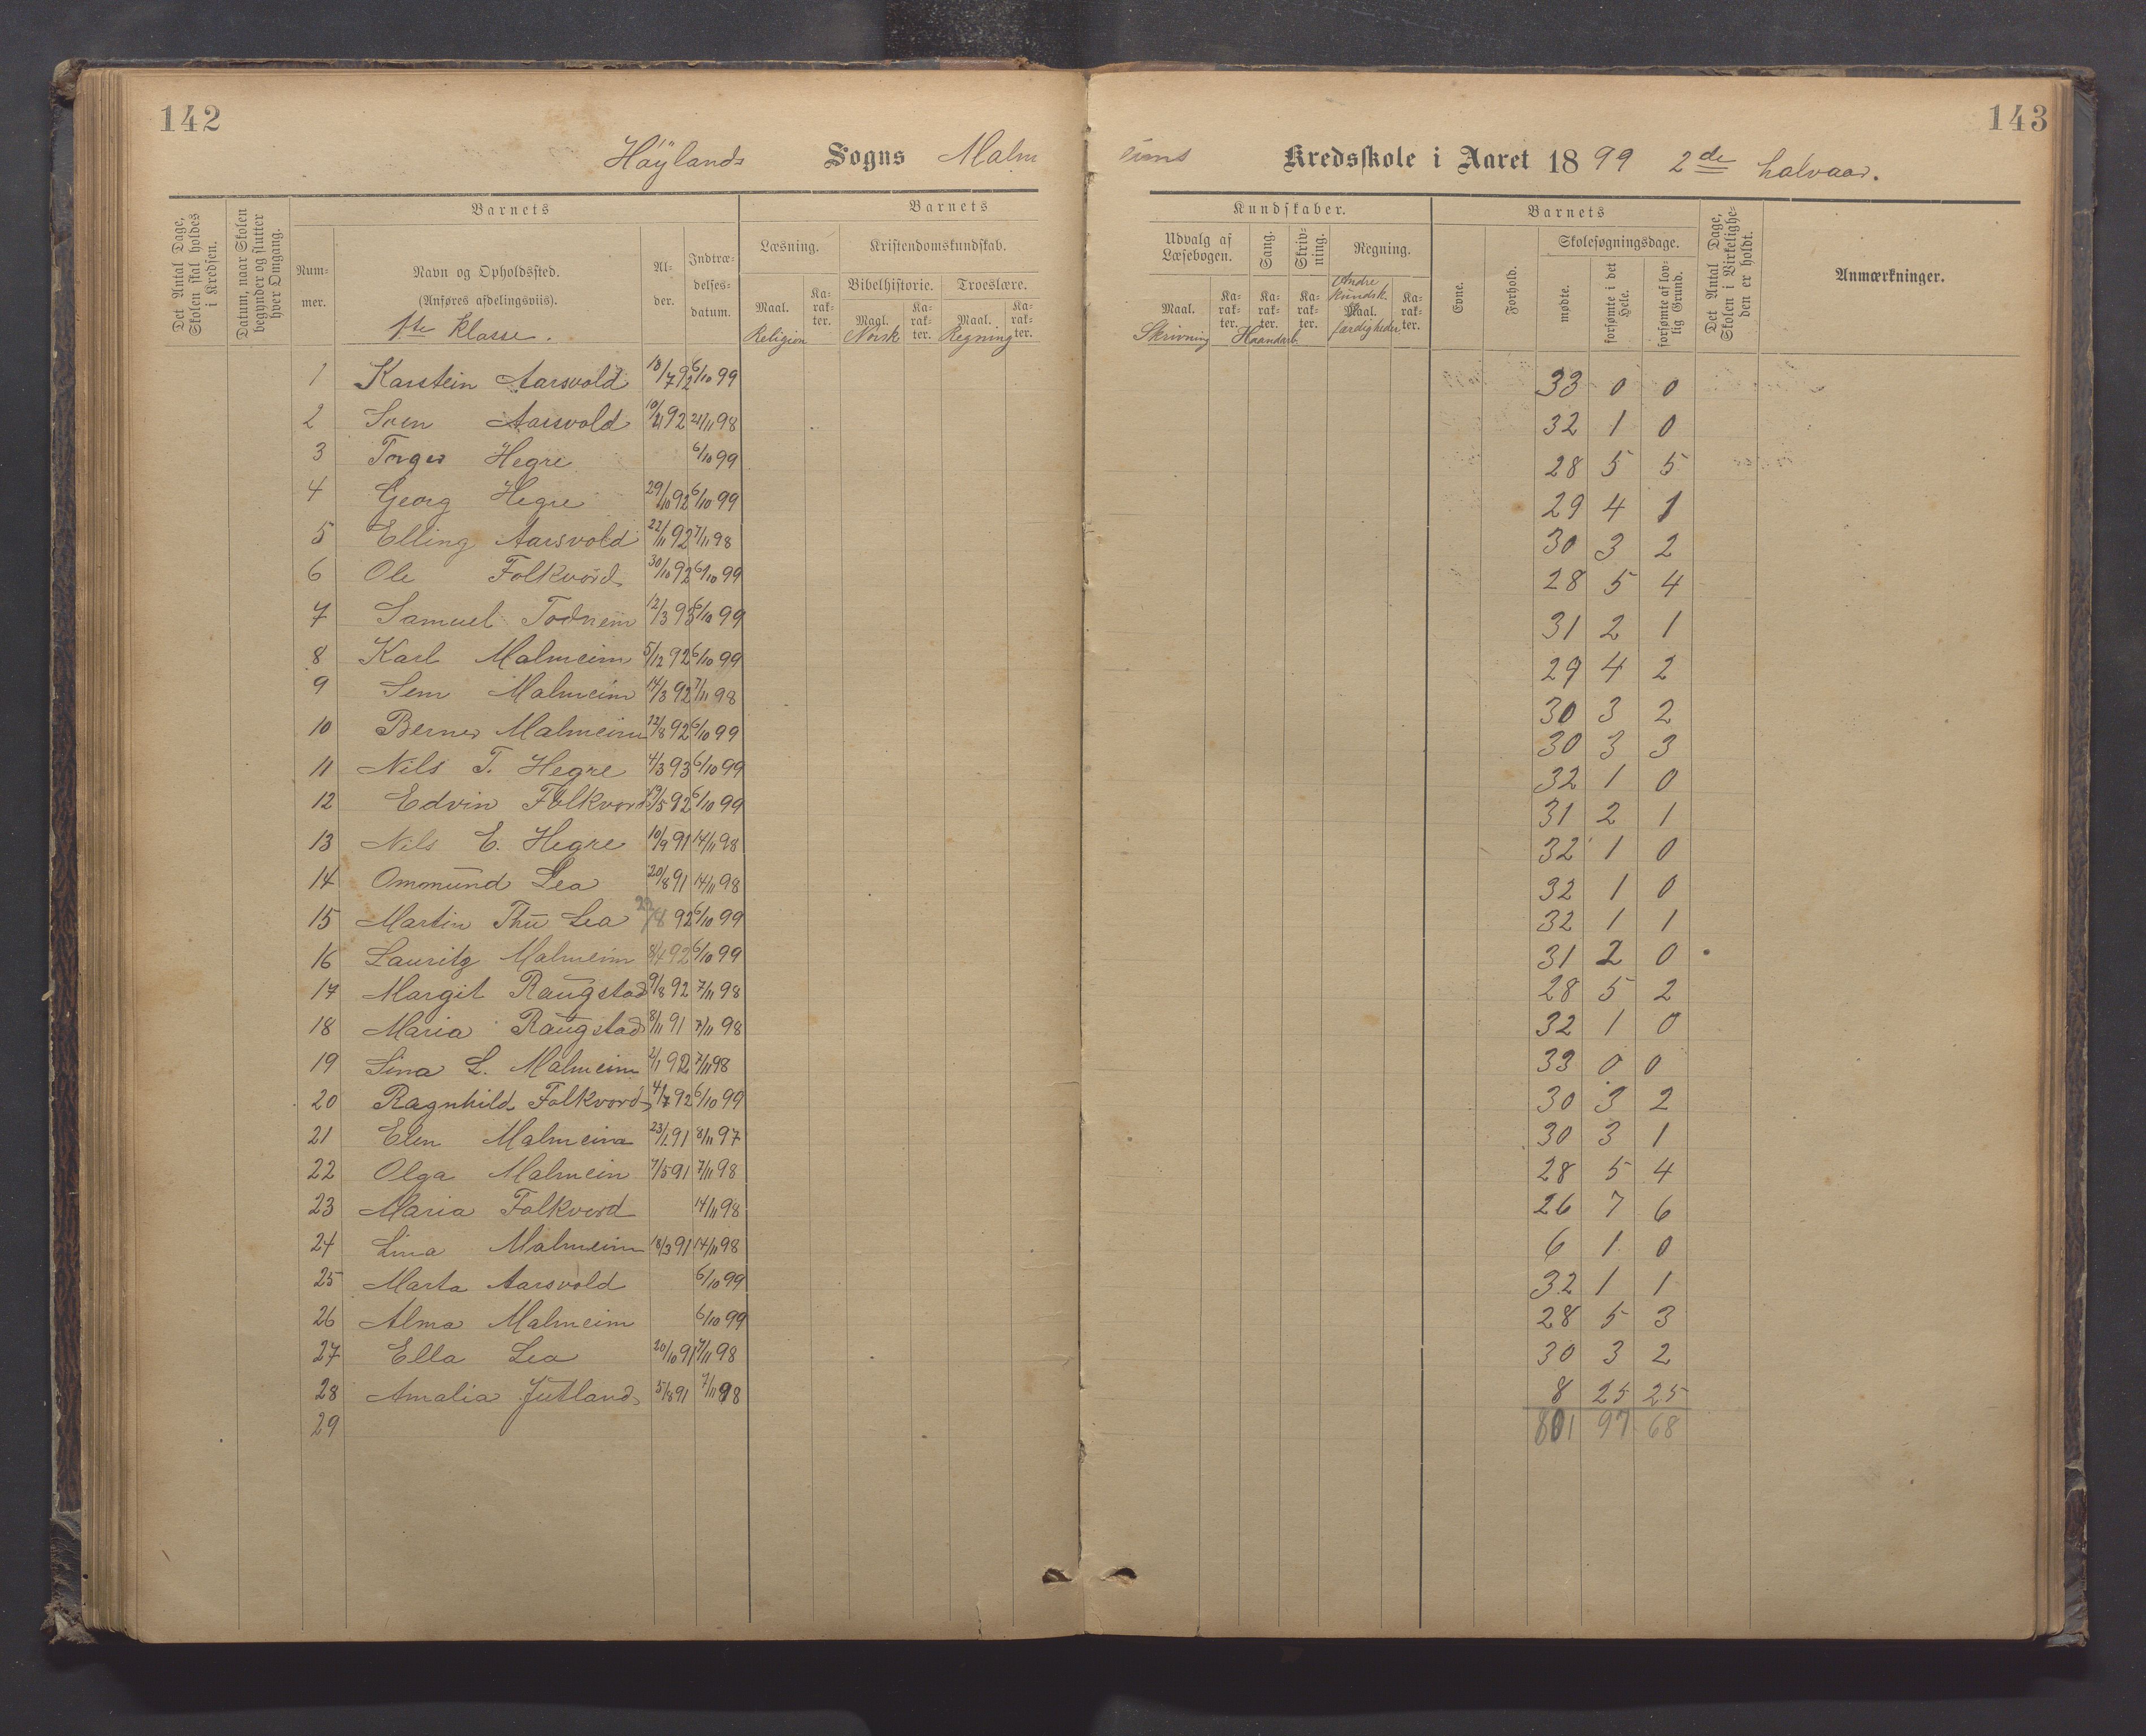 142
143
Höylands Sogns Malmeims Kredsskole i Aaret 1899 2de halvaar.
Det Antal Dage, Skolen skal holdes i Kredsen.
Datum, naar Skolen begynder og slutter hver Omgang.
Barnets
Nummer.
Navn og Opholdssted.
(Anføres afdelingsviis).
1ste Klasse.
Alder.
Indtrædelsesdatum.
Barnets Kundskaber.
Læsning.
Maal.
Karakter.
Religion
Kristendomskundskab.
Bibelhistorie.
Maal.
Karakter.
Norsk
Troeslære.
Maal.
Karakter.
Regning
Udvalg af Læsebogen.
Maal.
Karakter.
Skrivning
Sang.
Karakter.
Haandarb.
Skrivning.
Karakter.
Regning.
Andre kundsk.
Maal.
færdigheder
Karakter.
Barnets
Evne.
Forhold.
Skolesøgningsdage.
mødte.
forsømte i det Hele.
forsømte af lovlig Grund.
Det Antal Dage, Skolen i Virkeligheden er holdt.
Anmærkninger.
1 Karstein Aarsvold 18/7 92 6/10 99 33 0 0
2 Sven Aarsvold 92 21/11 98 32 1 0
3 Torger Hegre 6/10 99 28 5 5
4 Georg Hegre 29/10 92 6/10 99 29 4 1
5 Elling Aarsvold 22/11 92 7/11 98 30 3 2
6 Ole Folkvord 30/10 92 6/10 99 28 5 4
7 Samuel Todnem 12/3 93 6/10 99 31 2 1
8 Karl Malmeim 5/12 92 6/10 99 29 4 2
9 Sem Malmeim 14/3 92 7/11 98 30 3 2
10 Berner Malmeim 12/8 92 6/10 99 30 3 3
11 Nils T. Hegre 4/3 93 6/10 99 32 1 0
12 Edvin Folkvord /5 92 6/10 99 31 2 1
13 Nils E. Hegre 10/9 91 14/11 98 32 1 0
14 Ommund Lea 20/8 91 14/11 98 32 1 0
15 Martin Thu Lea 22/8 92 6/10 99 32 1 1
16 Lauritz Malmeim 8/4 92 6/10 99 31 2 0
17 Margit Raugstad 9/8 92 7/11 98 28 5 2
18 Maria Raugstad 8/11 91 7/11 98 32 1 0
19 Sina L. Malmeim 2/1 92 7/11 98 33 0 0
20 Ragnhild Folkvord 4/7 92 6/10 99 30 3 2
21 Elen Malmeim 23/1 91 8/11 97 30 3 1
22 Olga Malmein 7/5 91 7/11 98 28 5 4
23 Maria Folkvord 14/11 98 26 7 6
24 Lina Malmeim 18/3 91 14/11 98 6 1 0
25 Marta Aarsvold 6/10 99 32 1 1
26 Alma Malmeim 6/10 99 28 5 3
27 Ella Lea 20/10 91 7/11 98 30 3 2
28 Amalia Jutland 5/8 91 7/11 98 8 25 25
29 801 97 68